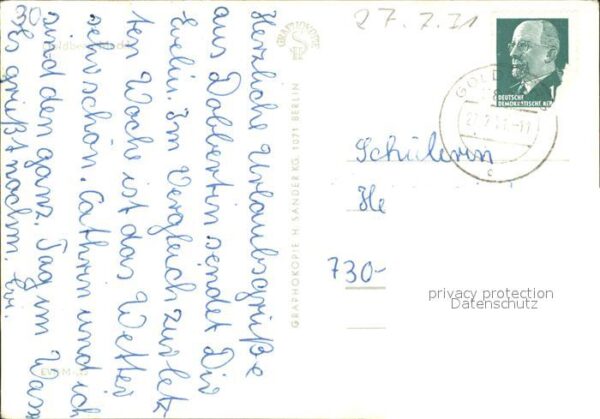 30
Herzliche Urlaubsgrüße
aus Dobbertin sendet Dir
Evelin. Im Vergleich zur letz
ten Woche ist das Wetter
sehr schön. Cathrin und ich
sind den ganz. Tag im Wass
Es grüßt nochm. Evi.
GRAPHOKOPIE H. SANDER KG, 1071 BERLIN
27.7.71
DEUTSCHE
DEMOKRATISCHE REP.
1
GOLD
c
Schülerin
He
730-
privacy protection
Datenschutz